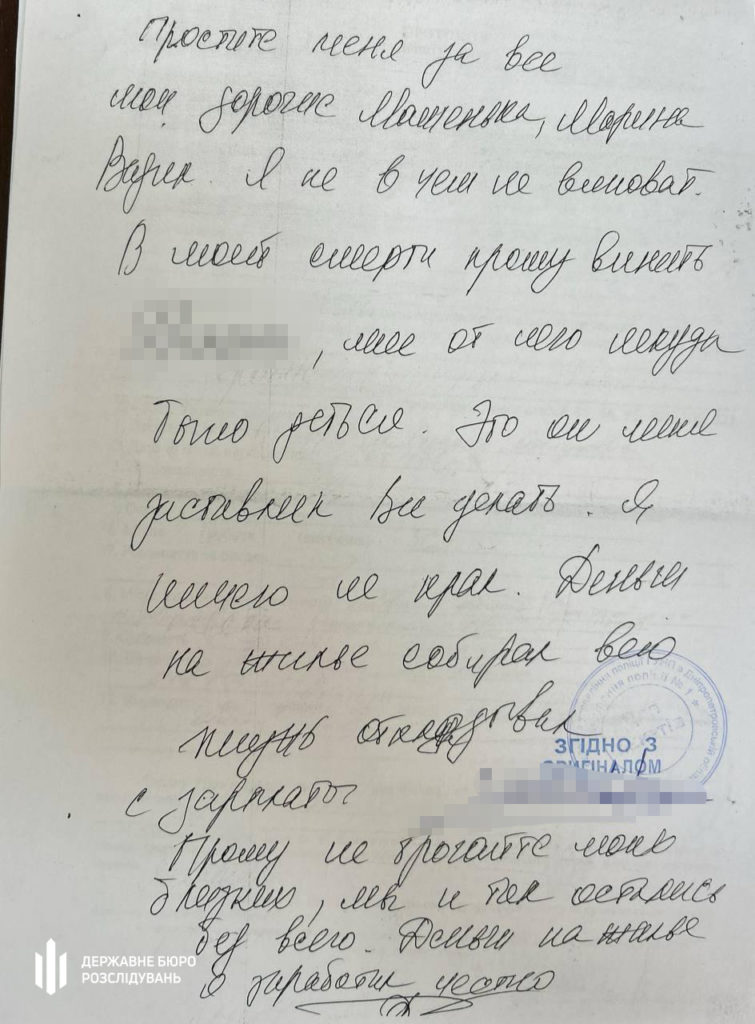 Простите меня за все
мои дорогие Машенька, Марина
Вадик. Я не в чем не виноват.
В моей смерти прошу винить
, мне от него некуда
было деться. Это он меня
заставлял Все делать. Я
ничего не крал. Деньги
на жилье собирал всю
жизнь откладывал
с зарплаты
ЗГІДНО З
ОРИГІНАЛОМ
Прошу не трогайте мою
близкию, мы и так остались
без всего. Деньги на жилье
я заработал честно
ДЕРЖАВНЕ БЮРО
РОЗСЛІДУВАНЬ